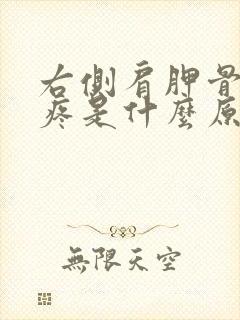 右側肩胛骨
疼是什麼原
無限天空